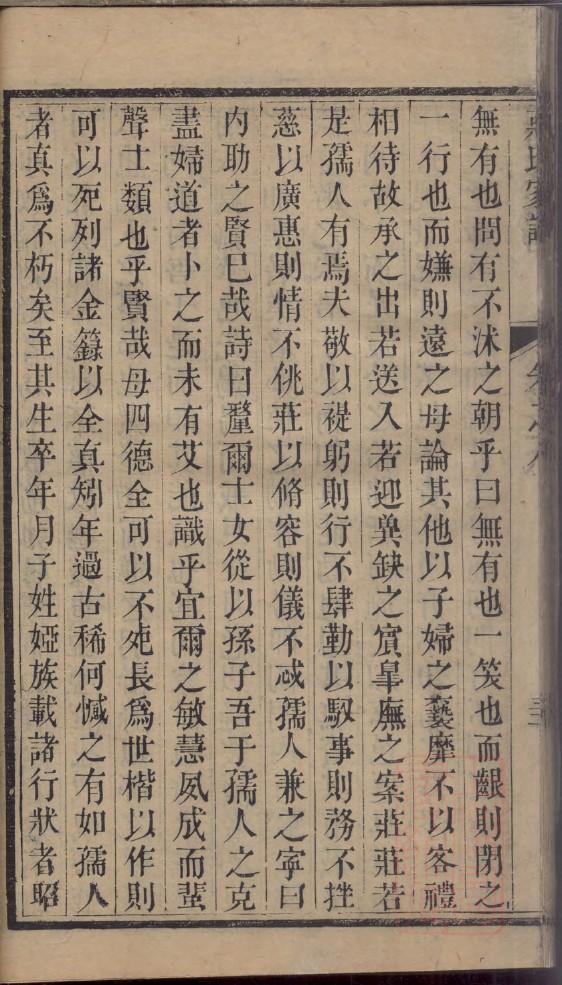 無有也問有不沐之朝乎曰無有也一笑也而齦則閉之
一行也而嫌則遠之母論其他以子婦之褻靡不以客禮
相待故承之出若送入若迎兾缺之賔臯廡之案莊莊若
是孺人有焉夫敬以褆躬則行不肆勤以馭事則務不挫
慈以廣惠則情不佻莊以脩容則儀不忒孺人兼之寧曰
内助之賢已哉詩曰釐爾士女從以孫子吾于孺人之克
盡婦道者卜之而未有艾也識乎宜爾之敏慧夙成而蜚
聲士類也乎賢哉母四德全可以不死長爲世楷以作則
可以死列諸金籙以全眞矧年過古稀何憾之有如孺人
者真爲不朽矣至其生卒年月子姓婭族載諸行狀者昭
氏家譜